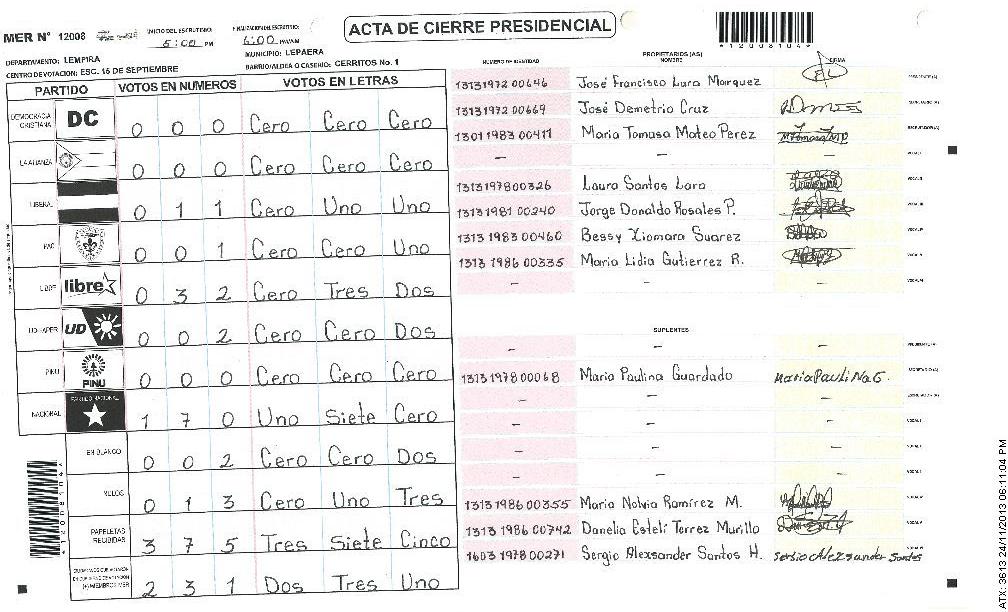 MER N° 12008
INICIO DEL ESCRUTINIO: 5:00 PM
FINALIZACION DEL ESCRUTINIO: 6:00 PM/AM
ACTA DE CIERRE PRESIDENCIAL
*12008104*
DEPARTAMENTO: LEMPIRA
MUNICIPIO: LEPAERA
CENTRO DE VOTACION: ESC. 15 DE SEPTIEMBRE
BARRIO/ALDEA O CASERIO: CERRITOS No. 1
PARTIDO VOTOS EN NUMEROS VOTOS EN LETRAS
DEMOCRACIA CRISTIANA DC 0 0 0 Cero Cero Cero
LA ALIANZA 0 0 0 Cero Cero Cero
LIBERAL 0 1 1 Cero Uno Uno
PAC 0 0 1 Cero Cero Uno
LIBRE libre 0 3 2 Cero Tres Dos
UD-FAPER UD 0 0 2 Cero Cero Dos
PINU PINU 0 0 0 Cero Cero Cero
NACIONAL PARTIDO NACIONAL 1 7 0 Uno Siete Cero
EN BLANCO 0 0 2 Cero Cero Dos
NULOS 0 1 3 Cero Uno Tres
PAPELETAS RECIBIDAS 3 7 5 Tres Siete Cinco
2 3 1 Dos Tres Uno
PROPIETARIOS (AS)
NUMERO DE IDENTIDAD NOMBRE FIRMA
1313197200646 José Francisco Lara Marquez PRESIDENTE (A)
1313197200669 José Demetrio Cruz SECRETARIO (A)
1301198300411 Maria Tomasa Mateo Perez ESCRUTADOR (A)
– – – VOCAL I
1313197800326 Laura Santos Lara VOCAL II
1313198100240 Jorge Donaldo Rosales P. VOCAL III
1313198300460 Bessy Xiomara Suarez VOCAL IV
1313198600335 Maria Lidia Gutierrez R. VOCAL V
– – – VOCAL VI
SUPLENTES
– – – PRESIDENTE (A)
1313197800068 Maria Paulina Guardado Maria Pauli Na G. SECRETARIO (A)
– – – ESCRUTADOR (A)
– – – VOCAL I
– – –
– – –
1313198600355 Maria Nolvia Ramírez M.
1313198600742 Danelia Estelí Torrez Murillo
1603197800271 Sergio Alexsander Santos H. sersio Alezsander Santos
*12008104*
ATX: 3613 24/11/2013 06:11:04 PM